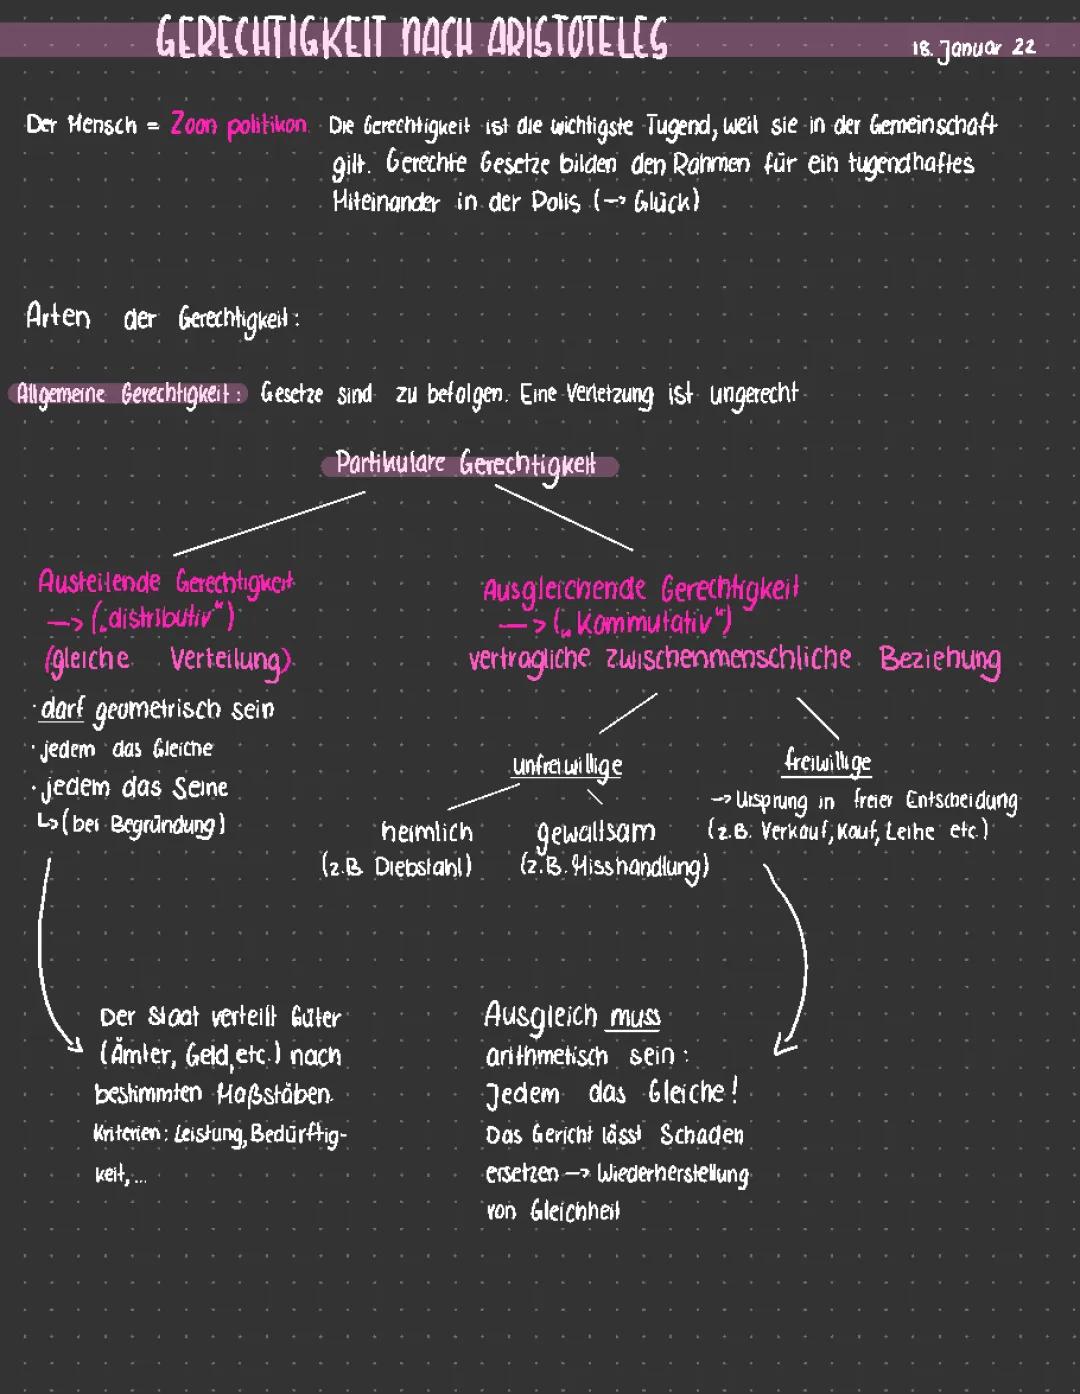 GERECHTIGKEIT NACH ARISTOTELES
18. Januar 22
Der Mensch = Zoon politikon. Die Gerechtigkeit ist die wichtigste Tugend, weil sie in der Gemeinschaft
gilt. Gerechte Gesetze bilden den Rahmen für ein tugendhaftes
Miteinander in der Polis (→ Glück)
Arten der Gerechtigkeit:
Allgemeine Gerechtigkeit: Gesetze sind zu befolgen. Eine Verletzung ist ungerecht
Partikulare Gerechtigkeit
Austeilende Gerechtigkeit
—> („distributiv“)
(gleiche Verteilung)
· darf geometrisch sein
· jedem das Gleiche
· jedem das Seine
↳ (bei Begründung)
Ausgleichende Gerechtigkeit
—> („Kommutativ“)
vertragliche zwischenmenschliche Beziehung
unfreiwillige
freiwillige
→ Ursprung in freier Entscheidung
(z.B. Verkauf, Kauf, Leihe etc.)
heimlich
(z.B. Diebstahl)
gewaltsam
(z.B. Misshandlung)
Der Staat verteilt Güter
(Ämter, Geld, etc.) nach
bestimmten Maßstäben.
Kriterien: Leistung, Bedürftig-
keit, ...
Ausgleich muss
arithmetisch sein:
Jedem das Gleiche!
Das Gericht lässt Schaden
ersetzen → Wiederherstellung
von Gleichheit